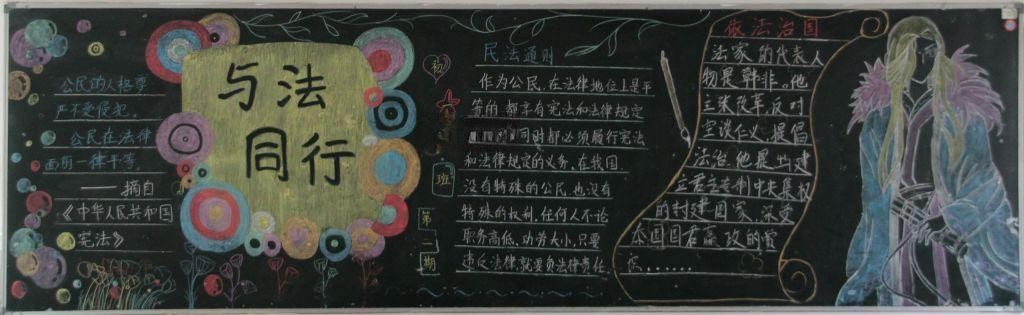 公民的人格尊
严不受侵犯。
公民在法律
面前一律平等。
——摘自
《中华人民共和国
宪法》
与法
同行
班
第一期
民法通则
作为公民，在法律地位上是平
等的 都享有宪法和法律规定
同时都必须履行宪法
和法律规定的义务。在我国
没有特殊的公民，也没有
特殊的权利，任何人不论
职务高低，功劳大小，只要
违反法律，就要负法律责任
依法治国
法家的代表人
物是韩非。他
主张改革反对
空谈仁义，提倡
法治，他是也建
立君主专制中央集权
的封建国家，深受
秦国国君嬴政的赏
识……